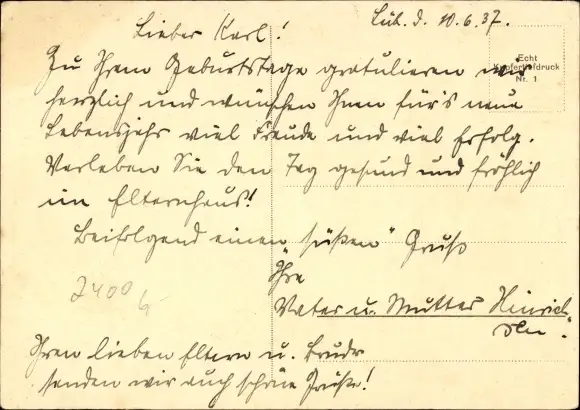 Lüb. d. 10.6.37.
Lieber Karl!
Echt
Kupfertiefdruck
Nr. 1
Zu Ihrem Geburtstage gratulieren wir
herzlich und wünschen Ihnen für's neue
Lebensjahr viel Freude und viel Erfolg.
Verleben Sie den Tag gesund und fröhlich
im Elternhaus!
Beifolgend einen „süßen" Gruß
Ihre
Vater u. Mutter Hinrich-
sen.
Ihren lieben Eltern u. Bruder
senden wir auch schöne Grüße!